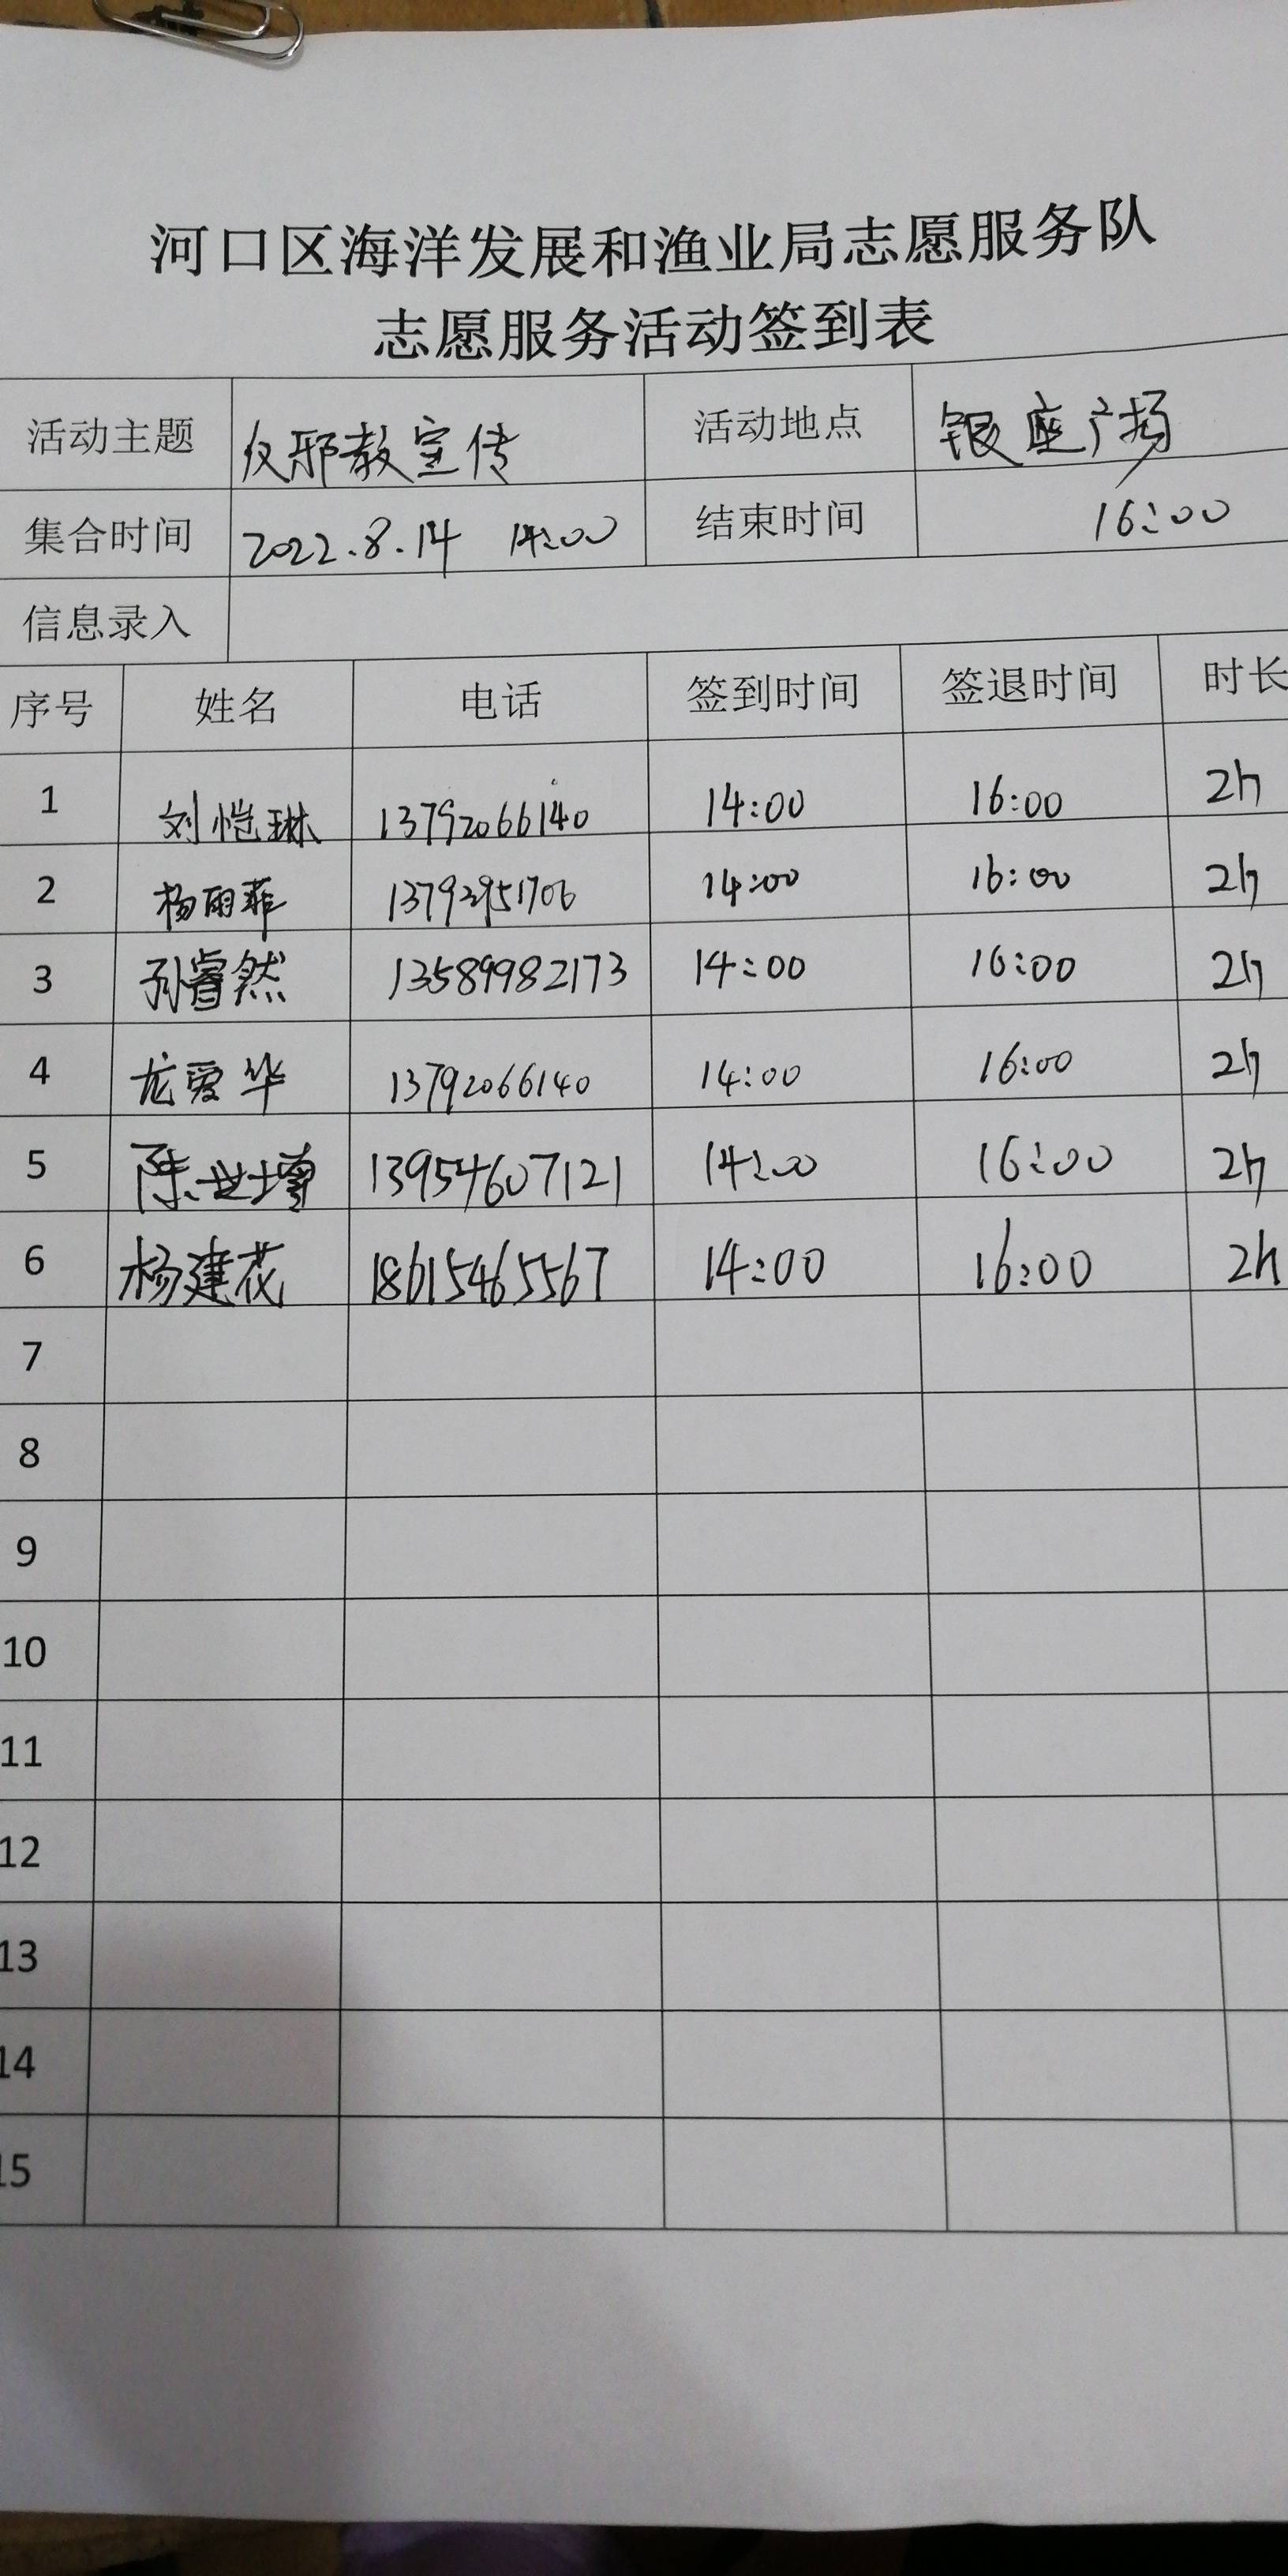 河口区海洋发展和渔业局志愿服务队
志愿服务活动签到表
活动主题 反邪教宣传 活动地点 银座广场
集合时间 2022.8.14 14:00 结束时间 16:00
信息录入
序号 姓名 电话 签到时间 签退时间 时长
1 刘恺琳 13792066140 14:00 16:00 2h
2 杨雨菲 13793951706 14:00 16:00 2h
3 孙睿然 13589982173 14:00 16:00 2h
4 龙爱华 13792066140 14:00 16:00 2h
5 陈世增 13954607121 14:00 16:00 2h
6 杨建花 18615465567 14:00 16:00 2h
7
8
9
10
11
12
13
14
15